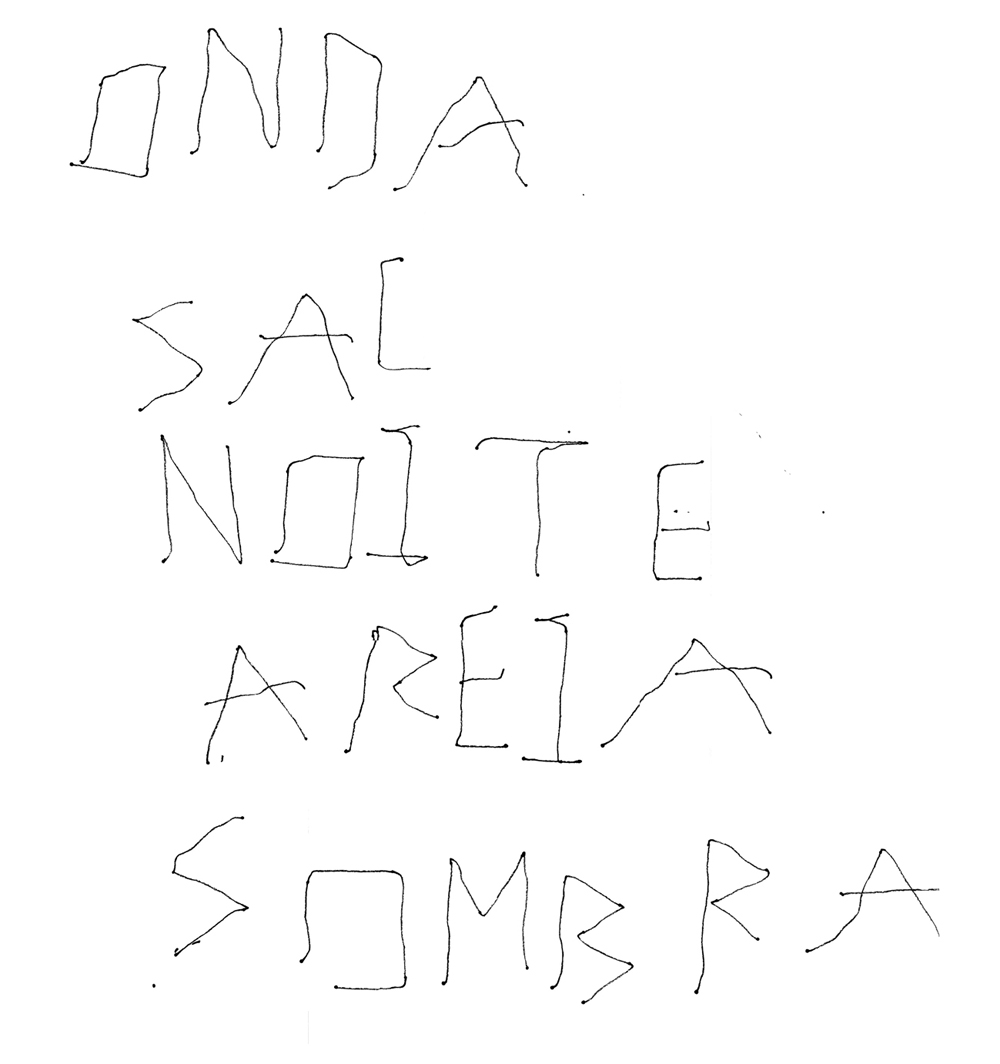 ONDA
SAL
NOITE
AREIA
SOMBRA